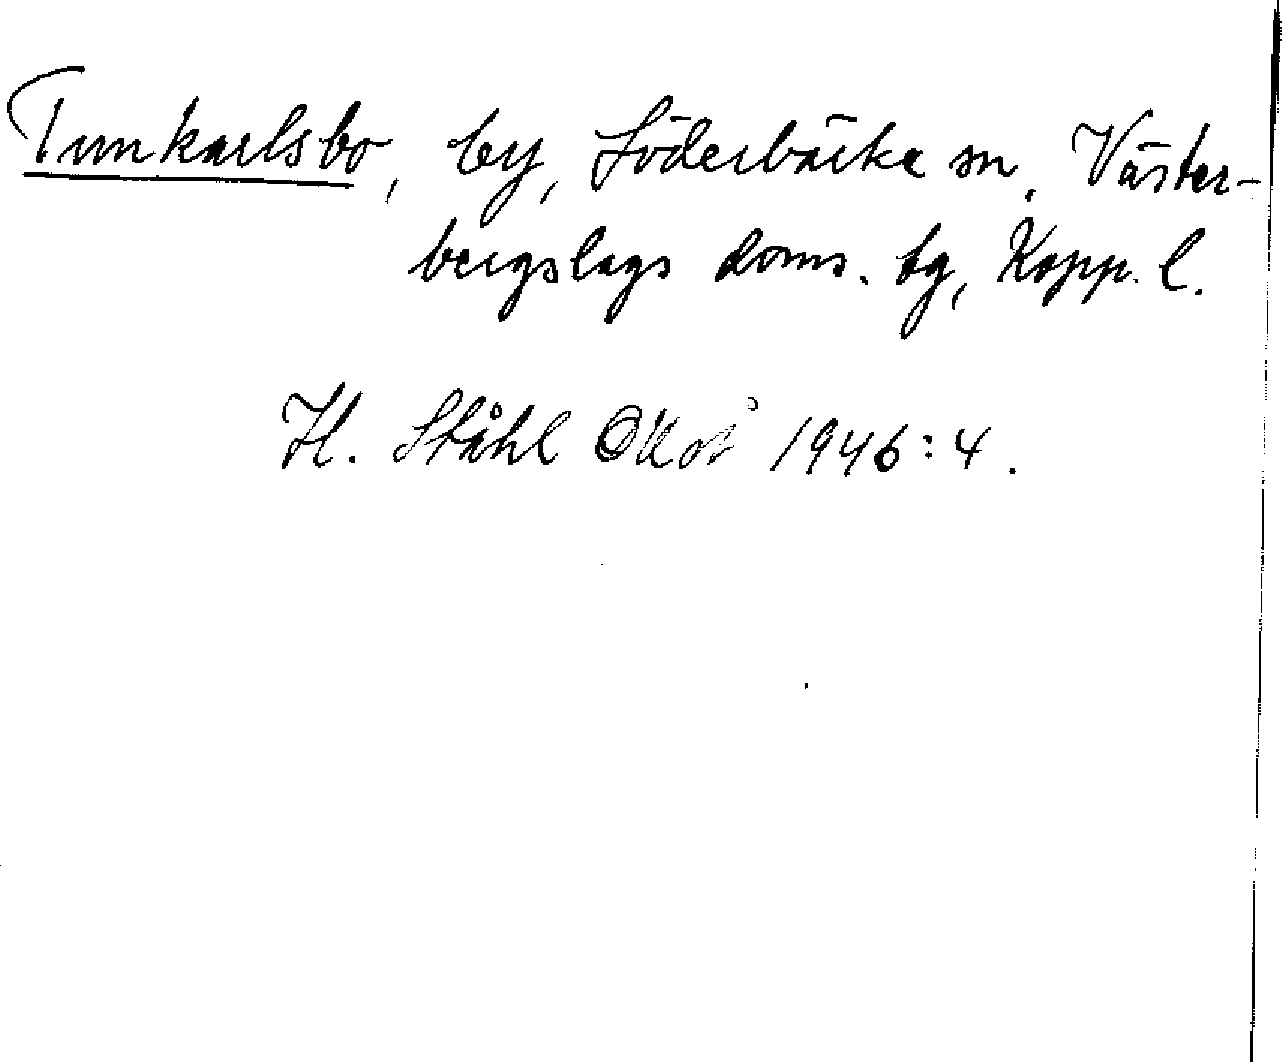 Tunkarlsbo, by, Söderbärke sn, Väster-
bergslags doms. tg, Kopp. l.
H. Ståhl Okt 1946:4.